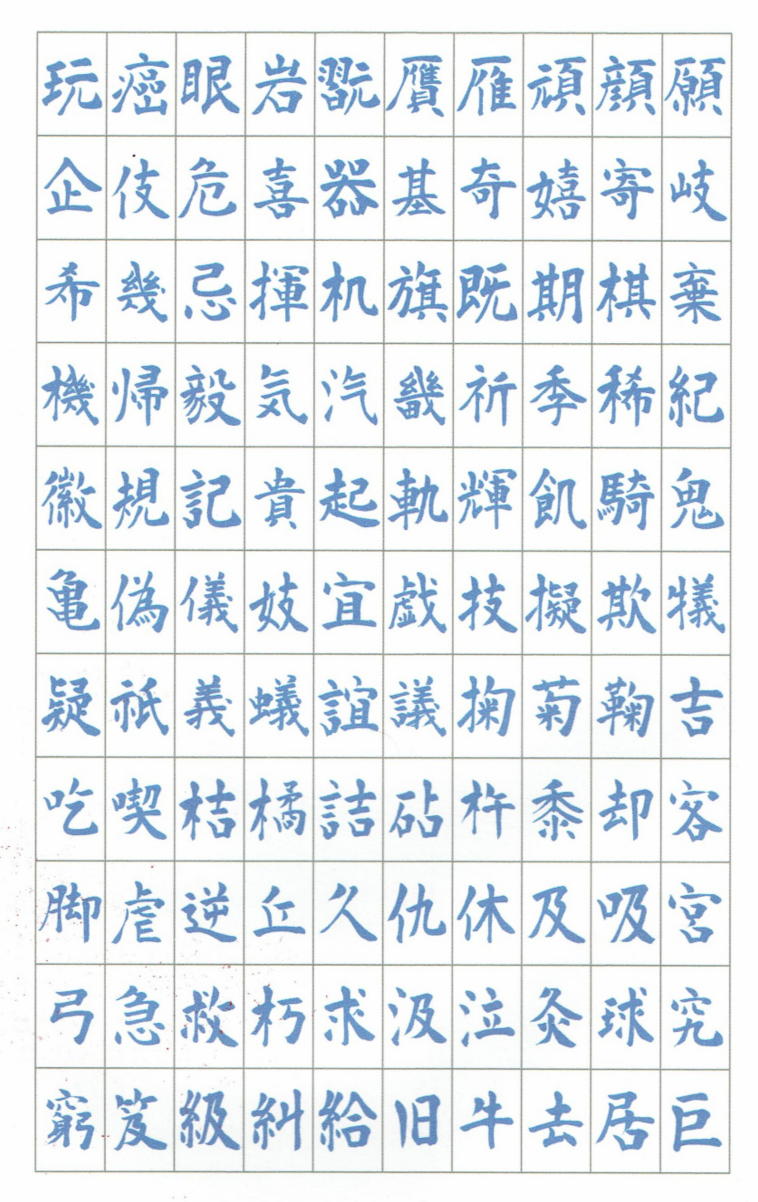 玩癌眼岩翫贋雁頑顔願
企伎危喜器基奇嬉寄岐
希幾忌揮机旗既期棋棄
機帰毅気汽畿祈季稀紀
徽規記貴起軌輝飢騎鬼
亀偽儀妓宜戯技擬欺犠
疑祇義蟻誼議掬菊鞠吉
吃喫桔橘詰砧杵黍却客
脚虐逆丘久仇休及吸宮
弓急救朽求汲泣灸球究
窮笈級糾給旧牛去居巨